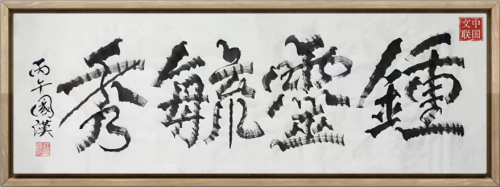 鍾靈毓秀
丙午國漢
中国
文联